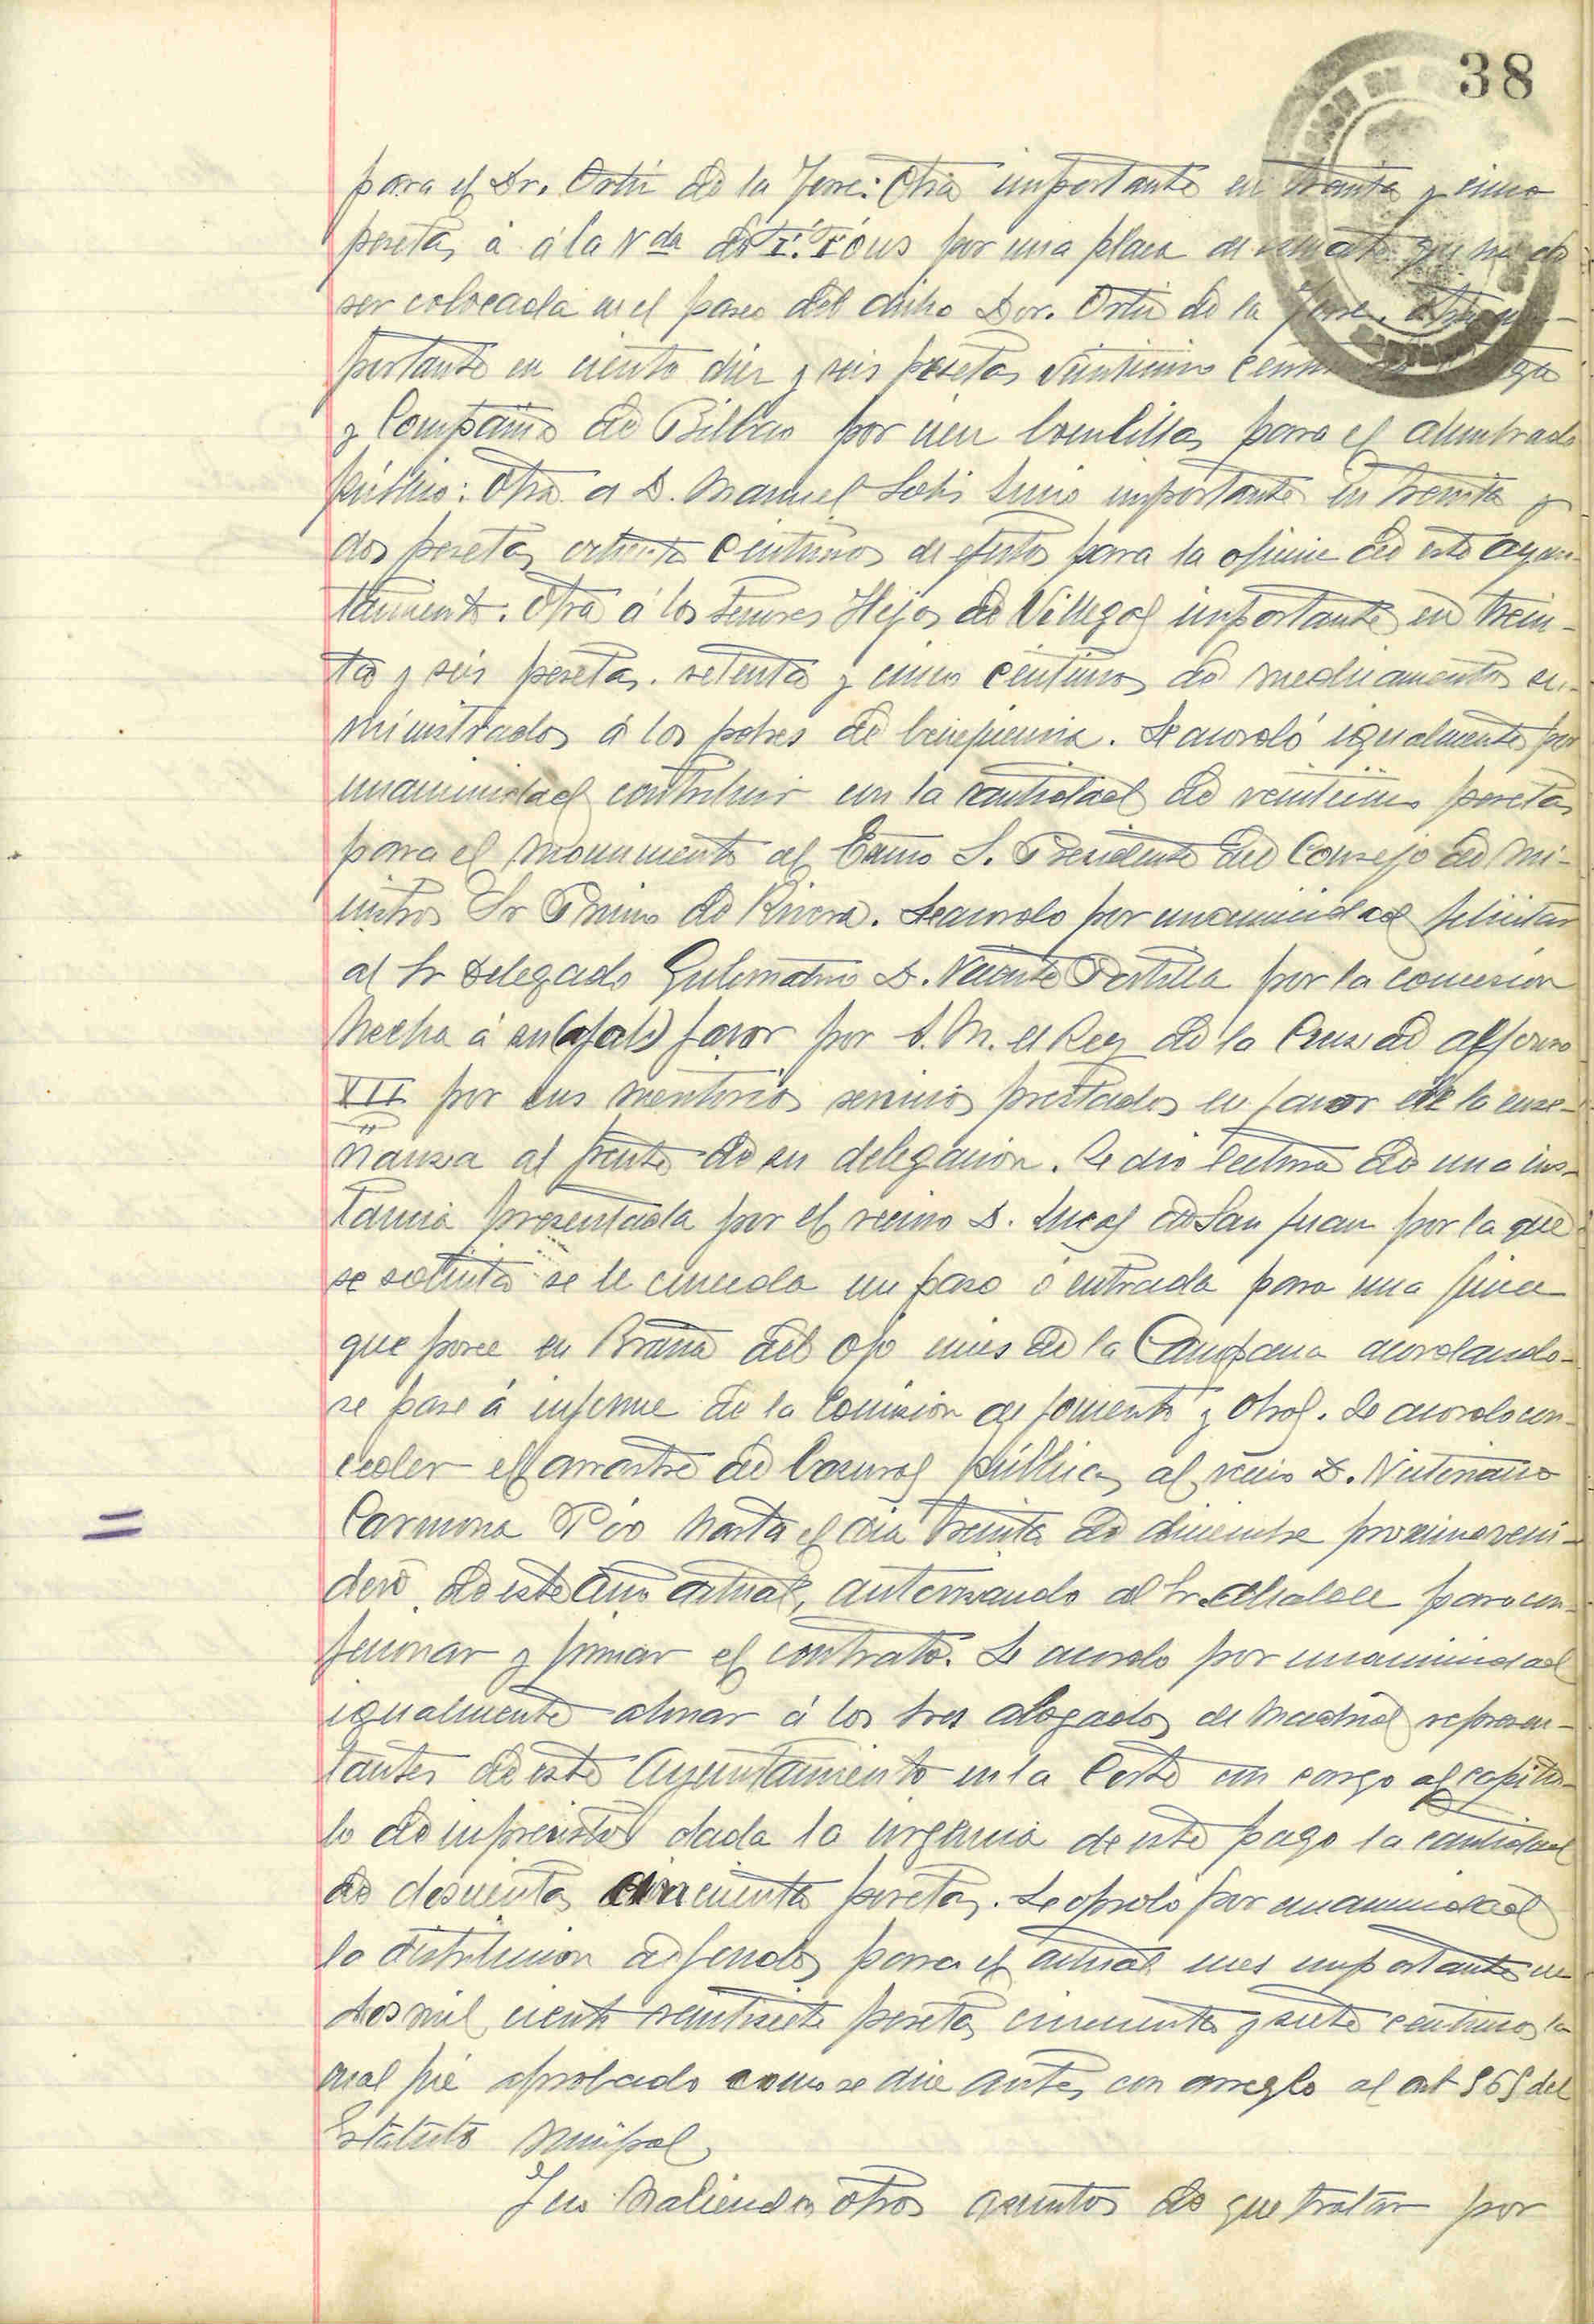 38
para el Dr. Ortiz de la Torre: Otra importante en treinta y cinco
pesetas á á la Vda de I. Tóus por una placa de esmalte que ha de
ser colocada en el paseo del dicho Dor. Ortiz de la Torre. Otra im-
portante en ciento diez y seis pesetas veinticinco
y Compañia de Bilbao por cien bombillas para el alumbrado
público: Otra a D. Manuel Solis importante en treinta y
dos pesetas ochenta centimos de efectos para la oficina de este Ayun-
tamiento. Otra á los Señores Hijos de Villegas importante en trein-
ta y seis pesetas setenta y cinco centimos de medicamentos su-
ministrados á los pobres de beneficencia. Se acordó igualmente por
unanimidad contribuir con la cantidad de veinticinco pesetas
para el monumento al Exmo S. Presidente del Consejo de Mi-
nistros Sr Primo de Rivera. Se acordo por unanimidad felicitar
al Sr Delegado Gubernativo D. Vicente Portilla por la concesion
hecha á su favor por S. M. el Rey de la Cruz de Alfonso
XII por sus meritorios servicios prestados en favor de la ense-
ñanza al frente de su delegacion. Se dio lectura de una ins-
tancia presentada por el vecino D. Lucas de San Juan por la que
se solicita se le conceda un paso ó entrada para una finca
que posee en Braña del Ojo mies de la Campana acordando-
se pase á informe de la Comision de fomento y Obras. Se acordo con-
ceder el arrastre de basuras públicas al vecino D. Victoriano
Carmona Pio hasta el dia treinta de diciembre proximo veni-
dero de este año actual, autorizando al Sr. Alcalde para con-
feccionar y firmar el contrato. Se acordo por unanimidad
igualmente abonar á los tres abogados de Madrid represen-
tantes de este Ayuntamiento en la Corte con cargo al capitu-
lo de imprevistos dada la urgencia de este pago la cantidad
de doscientas cincuenta pesetas. Se aprobo por unanimidad
la distribucion de fondos para el actual mes importante en
dos mil ciento veintisiete pesetas cincuenta y siete centimos la
cual fué aprobado como se dice antes con arreglo al art 569 del
Estatuto Munipal.
Y no habiendo otros asuntos de que tratar por